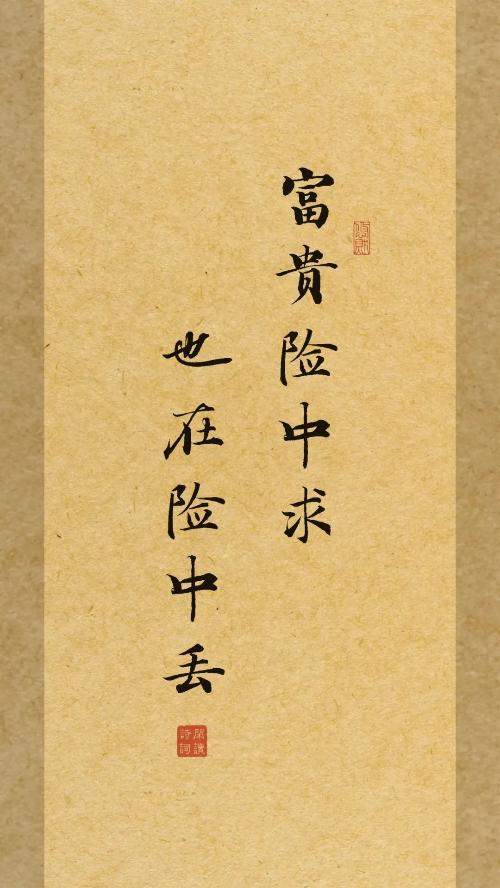 富貴险中求
也在险中丢
閑讀詩詞